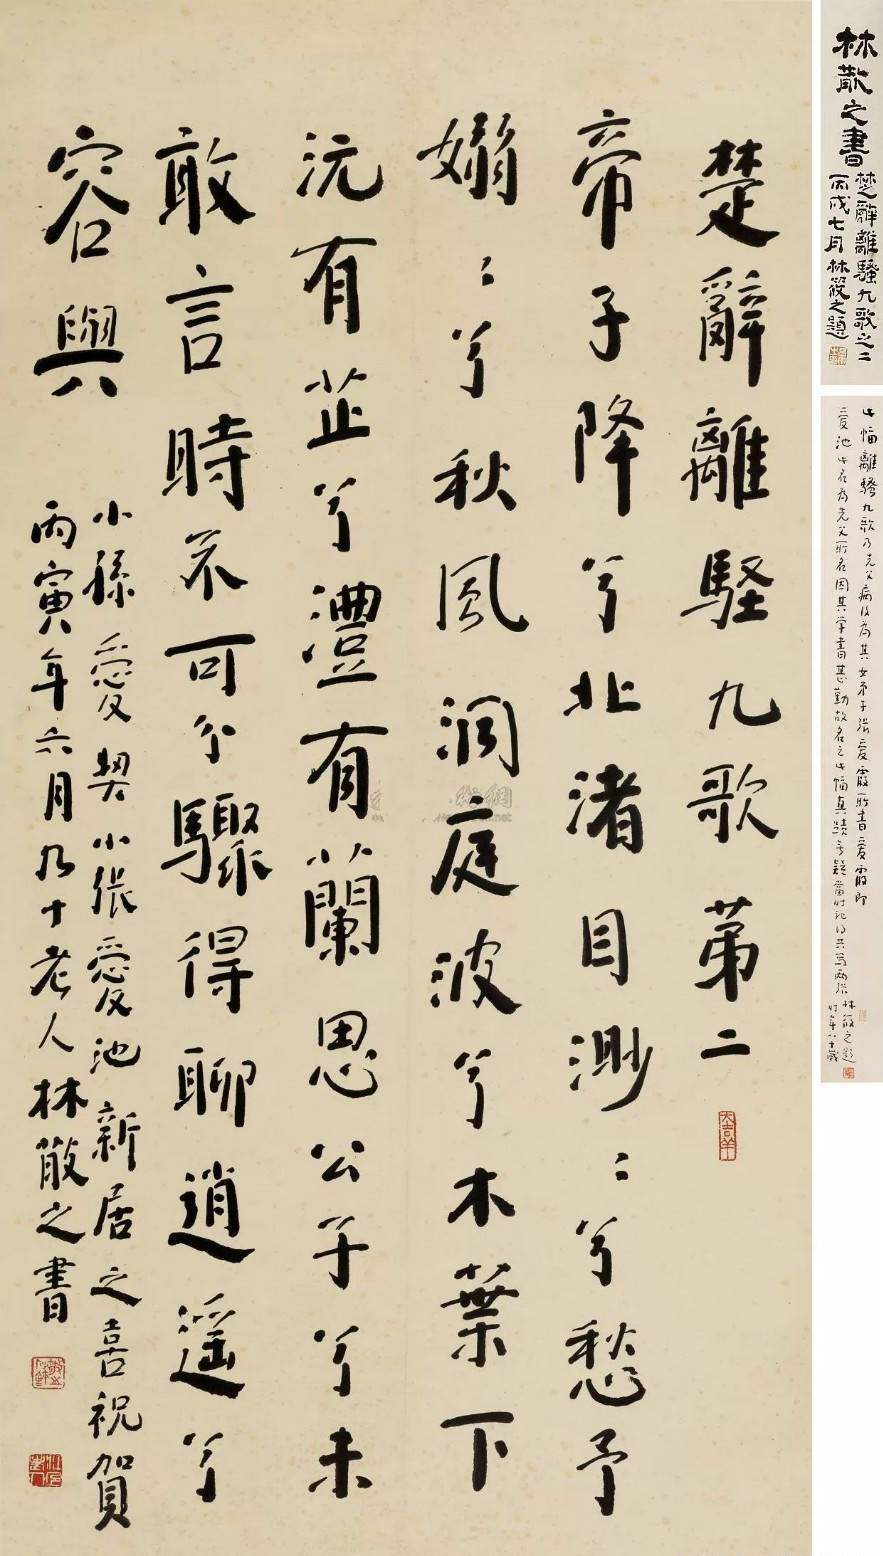 林散之書
楚辭離騷九歌之二
丙戌七月林筱之題
此幅離騷九歌乃先父病後為其女弟子張愛霞所書愛霞即
愛池此名為先父所名因其学書甚勤故名之此幅真蹟無疑當時記得共寫兩張
林筱之題
時年八十歲
楚辭離騷九歌第二
大吉羊
帝子降兮北渚目渺〻兮愁予
嫋〻兮秋風洞庭波兮木葉下
沅有芷兮澧有蘭思公子兮未
敢言時不可兮驟得聊逍遥兮
容與
小孫愛契小張愛池新居之喜祝賀
丙寅年六月九十老人林散之書